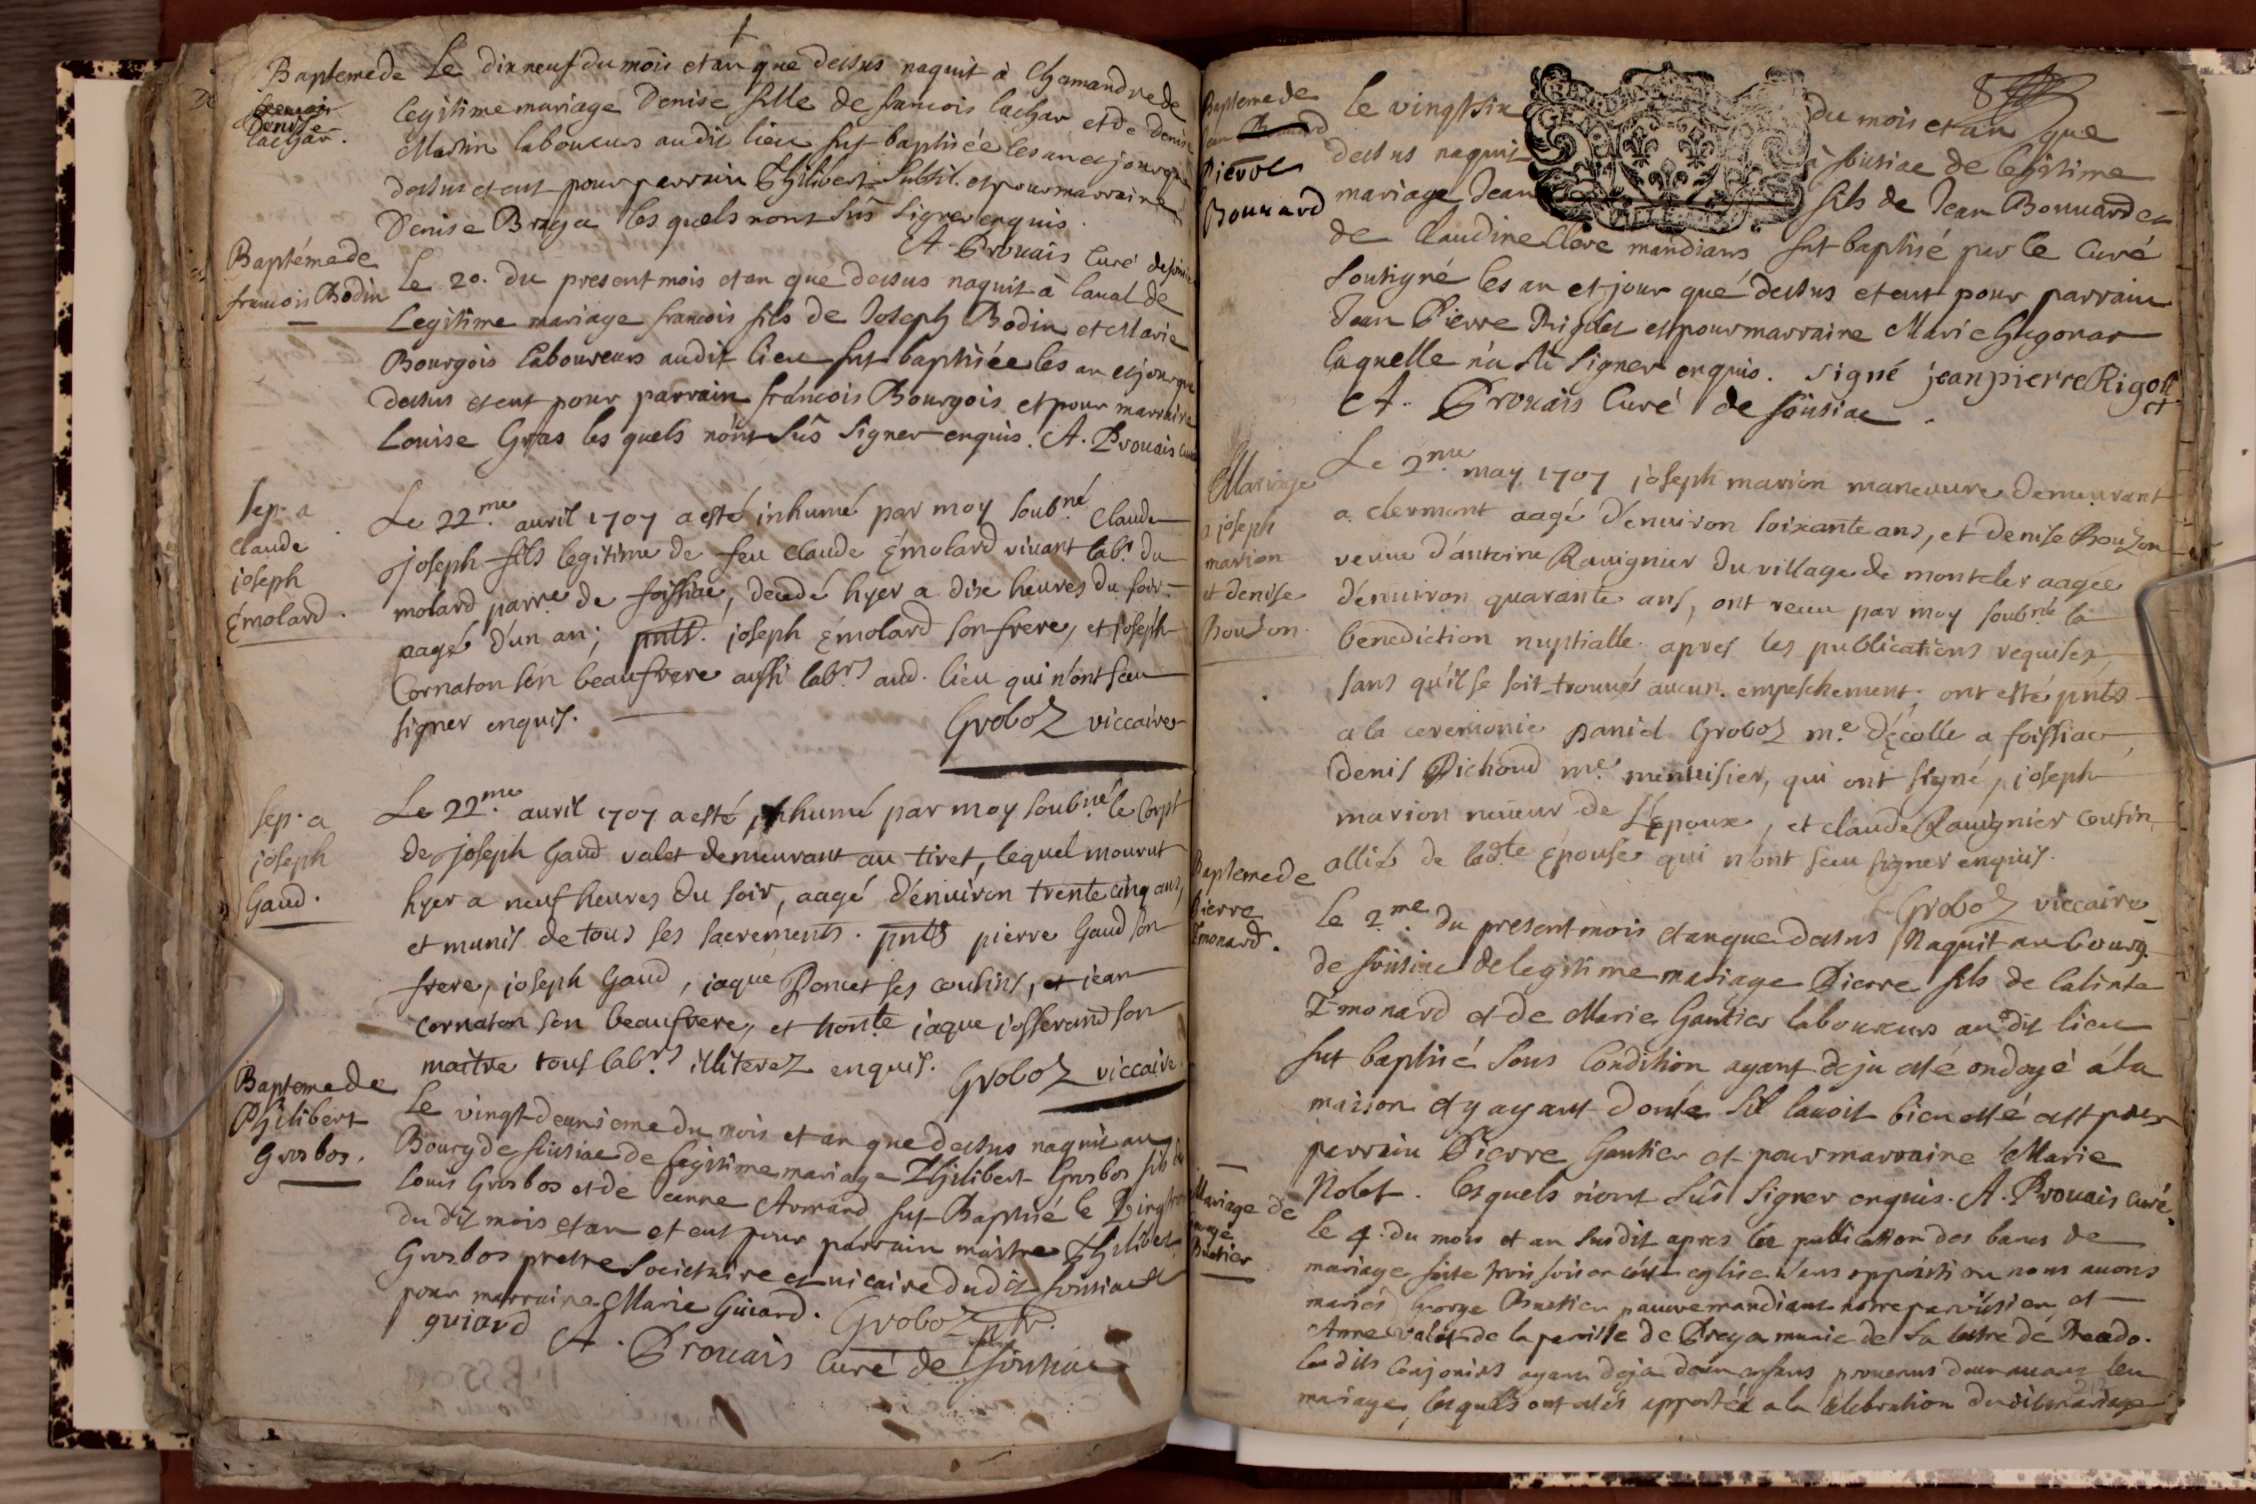 Bapteme de
Denise
Lachar.
Le dix neuf du mois et an que dessus naquit à Chamandre de
legitime mariage Denise fille de francois lachar et de Denise
Martin laboureurs audit lieu fut baptisée les an et jour que
dessus et eut pour parrain Philibert Subtil et pour marraine
Denise Braya les quels n'ont sûs signer enquis.
A. Prouais Curé de
Baptéme de
francois Bodin
Le 20. du present mois et an que dessus naquit à laual de
Legitime mariage francois fils de Joseph Bodin et Marie
Bourgois laboureurs audit lieu fut baptisée les an et jour que
dessus et eut pour parrain francois Bourgois et pour marraine
Louise Gras les quels n'ont sûs signer enquis. A. Prouais curé
sep.a
claude
joseph
Émolard.
Le 22.me auril 1707 a esté inhumé par moy soubné Claude
joseph fils legitime de feu claude Émolard viuant labr. du
molard parre. de foissiac, decedé hyer a dixe heures du soir
aagé d'un an; pnts. joseph Émolard son frere, et joseph
Cornaton son beaufrere aussi labrs. aud. lieu qui n'ont sceu
signer enquis.
Groboz viccaire
sep.a
joseph
Gaud.
Le 22.me auril 1707 a esté inhumé par moy soubné. le corps
de joseph Gaud valet demeurant au tiret, lequel mourut
hyer a neuf heures du soir, aagé d'enuiron trente cinq ans,
et munis de tous ses sacrements. pnts pierre Gaud son
frere, joseph Gaud, jaque Donet ses cousins, et jean
cornaton son beaufrere, et honte. jaque josserand son
maitre tous labrs. illiterez enquis.
Groboz viccaire.
Baptemede
Philibert
Grosbos.
Le vingt deuxieme du mois et an que dessus naquit au
Bourg de foisiac de legitime mariage Philibert Grosbos fils de
Louis Grosbos et de Jeanne Armand fut Baptisé le vingt
du dit mois et an et eut pour parrain maistre Philibert
Grosbos prestre societaire et uicaire dudit foisiac et
pour marraine Marie Guiard.
guiard Groboz ptr.
A. Prouais Curé de foissiac
8
Baptemede
Jean
Pierre
Bouuard
le vingt six du mois et an que
dessus naquit à foisiac de legitime
mariage Jean fils de Jean Bouuard et
de Claudine Clere mandians fut baptisé par le Curé
soutigné les an et jour qué dessus et eut pour parrain
Jean Pierre Rigolet et pour marraine Marie hugonar
laquelle n'a sû signer enquis. signé jeanpierre Rigollet
A. Prouais Curé de foisiac.
Mariage
a joseph
marion
et denise
Bouzon.
Le 2.me may 1707 joseph marion maneuure demeurant
a clermont aagé d'enuiron soixante ans, et denise Bouzon
veuue d'antoine Rauignier du village de montcler aagée
d'enuiron quarante ans, ont receu par moy soubné la
benediction nuptialle apres les publications requises
sans qu'il se soit trouués aucun empeschement, ont esté pnts
a la ceremonie Daniel Groboz me. d'écolle a foissiac,
Denis Pichoud me. menuisier, qui ont signé, joseph
marion neueur de L'époux, et claude Rauignier cousin
allié de ladte épouse qui n'ont sceu signer enquis.
Groboz viccaire
Baptemede
Pierre
Emonard.
le 2.me du present mois et an que dessus Naquit au bourg
de foisiac de legitime mariage Pierre fils de Calixte
Emonard et de Marie Gautier laboureurs au dit lieu
fut baptisé sous Condition ayant deja esté ondoyé á la
maison et y ayant doute sil lauoit bien esté et pour
perrain Pierre Gautier et pour marraine Marie
Nolet. lesquels n'ont sûs signer enquis. A. Prouais Curé.
Mariage de
George
Buetier
le 4. du mois et an susdit apres la publication des bancs de
mariage faite trois fois en cette eglise sans opposition nous auons
mariés George Buetier pauure mandiant notre paroissien et
Anne valet de la paroisse de Breya munie de sa lettre de
les dits Conjoints ayant deja deux enfans prouenus d'eux auant leu
mariage, lesquels ont estés apportés a la Celebration du dit mariage